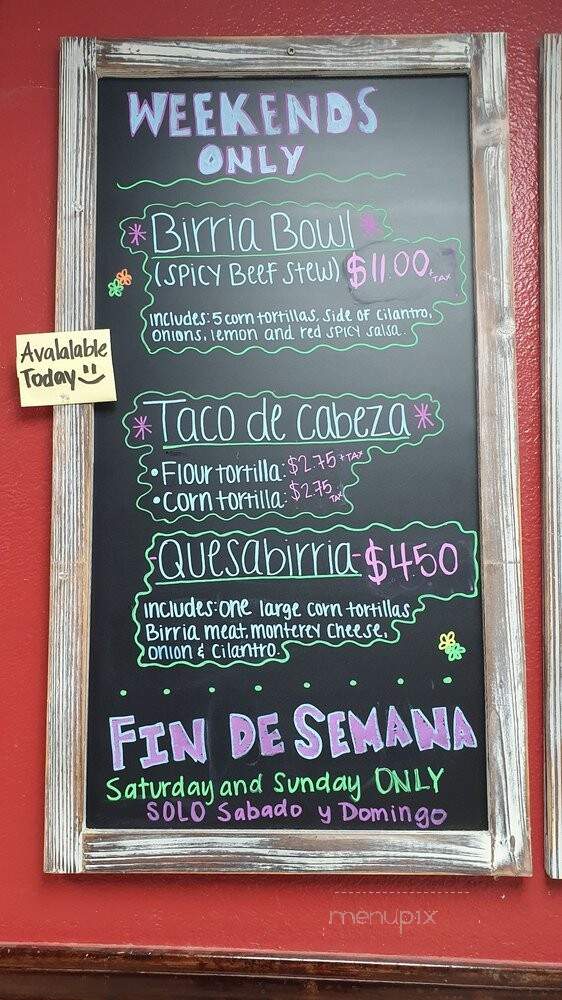 WEEKENDS
ONLY
Birria Bowl
(Spicy Beef Stew) $11.00 + TAX
includes: 5 corn tortillas, side of cilantro,
onions, lemon and red spicy salsa.
Avalalable
Today
Taco de cabeza
• Flour tortilla: $2.75 + TAX
• Corn tortilla: $2.75 TAX
Quesabirria - $4.50
includes: one large corn tortillas,
Birria meat, monterey cheese,
onion & cilantro.
FIN DE SEMANA
Saturday and Sunday ONLY
SOLO Sabado y Domingo
menupix